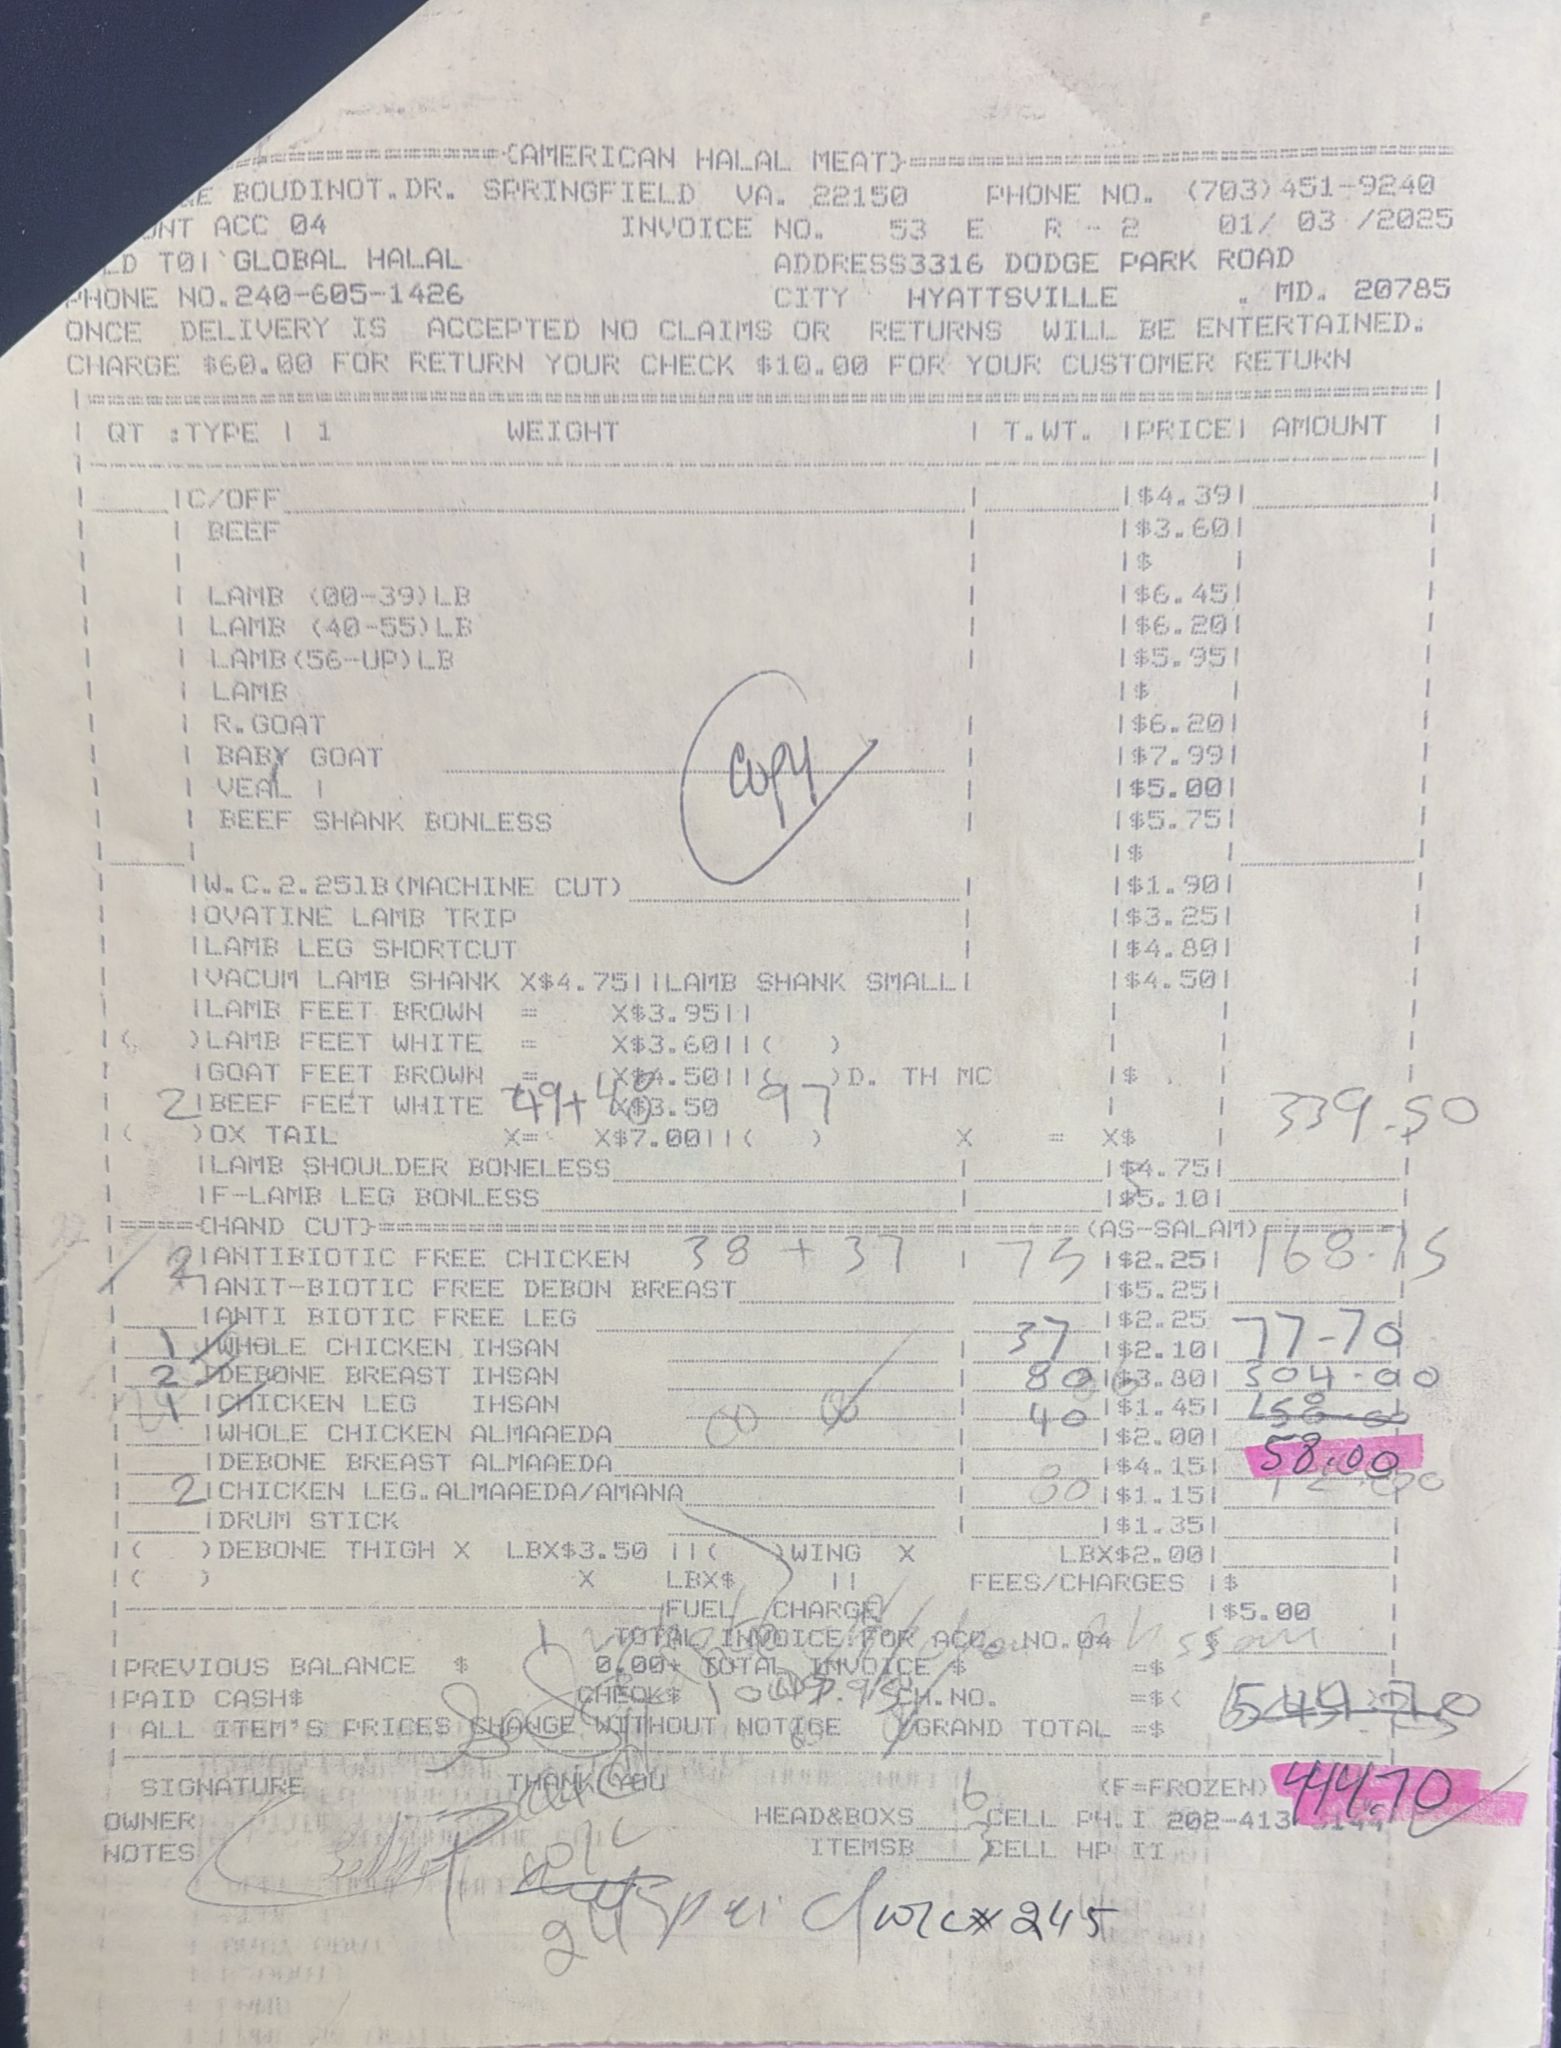 {AMERICAN HALAL MEAT}
BOUDINOT.DR. SPRINGFIELD VA. 22150 PHONE NO. (703)451-9240
ACC 04 INVOICE NO. 53 E R - 2 01/ 03 /2025
LD TO| GLOBAL HALAL ADDRESS3316 DODGE PARK ROAD
PHONE NO.240-605-1426 CITY HYATTSVILLE . MD. 20785
ONCE DELIVERY IS ACCEPTED NO CLAIMS OR RETURNS WILL BE ENTERTAINED.
CHARGE $60.00 FOR RETURN YOUR CHECK $10.00 FOR YOUR CUSTOMER RETURN
| QT :TYPE | 1 WEIGHT | T.WT. |PRICE| AMOUNT |
|C/OFF |$4.39|
BEEF |$3.60|
|$ |
LAMB (00-39)LB |$6.45|
LAMB (40-55)LB |$6.20|
LAMB(56-UP)LB |$5.95|
LAMB |$ |
R.GOAT |$6.20|
BABY GOAT |$7.99|
Copy
VEAL | |$5.00|
BEEF SHANK BONLESS |$5.75|
|$ |
|W.C.2.25lB(MACHINE CUT) |$1.90|
|OVATINE LAMB TRIP |$3.25|
|LAMB LEG SHORTCUT |$4.80|
|VACUM LAMB SHANK X$4.75||LAMB SHANK SMALL| |$4.50|
|LAMB FEET BROWN = X$3.95||
|( )LAMB FEET WHITE = X$3.60||( )
|GOAT FEET BROWN = X$4.50||( )D. TH MC |$
2|BEEF FEET WHITE 49+48 X$3.50 97 339.50
|( )OX TAIL X= X$7.00||( ) X = X$
|LAMB SHOULDER BONELESS |$4.75|
|F-LAMB LEG BONLESS |$5.10|
|===={HAND CUT}====(AS-SALAM)====|
2|ANTIBIOTIC FREE CHICKEN 38 + 37 | 75 |$2.25| 168.75
|ANIT-BIOTIC FREE DEBON BREAST |$5.25|
|ANTI BIOTIC FREE LEG |$2.25
1 |WHOLE CHICKEN IHSAN 37 |$2.10| 77-70
2 |DEBONE BREAST IHSAN 80 |$3.80| 304.00
1 |CHICKEN LEG IHSAN 40 |$1.45|
|WHOLE CHICKEN ALMAAEDA |$2.00|
|DEBONE BREAST ALMAAEDA |$4.15| 58.00
2|CHICKEN LEG.ALMAAEDA/AMANA 80 |$1.15|
|DRUM STICK |$1.35|
|( )DEBONE THIGH X LBX$3.50 ||( )WING X LBX$2.00|
|( ) X LBX$ || FEES/CHARGES |$
FUEL CHARGE |$5.00
TOTAL INVOICE FOR ACC. NO.04 $
|PREVIOUS BALANCE $ 0.00+ TOTAL INVOICE $ =$
|PAID CASH$ CHECK$ CH.NO. =$(
| ALL ITEM'S PRICES CHANGE WITHOUT NOTICE GRAND TOTAL =$
SIGNATURE THANK YOU (F=FROZEN) 444.70
OWNER HEAD&BOXS 6 CELL PH.I 202-413-
NOTES ITEMSB CELL HP II
245